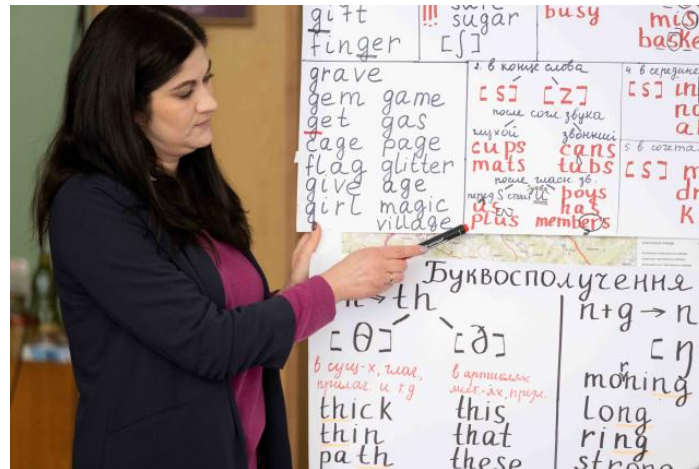 gift
finger
!!! sure
sugar
[ʃ]
busy
grave
gem game
get gas
cage page
flag glitter
give age
girl magic
village
2. в конце слова
[s] [z]
после согл. звука
глухой звонкий
cups cans
mats tubs
после гласн. зв.
перед s стоит u
boys
as has
plus members
4. в середине
[s] in
5. в сочета
[s] m
dr
k
Буквосполучення
→ th
[θ] [ð]
в сущ-х, глаг,
прилаг. и т д
в артиклях
мест.-ях, предл.
thick this
thin that
path these
n+g → n
[ŋ
morning
long
ring
strong